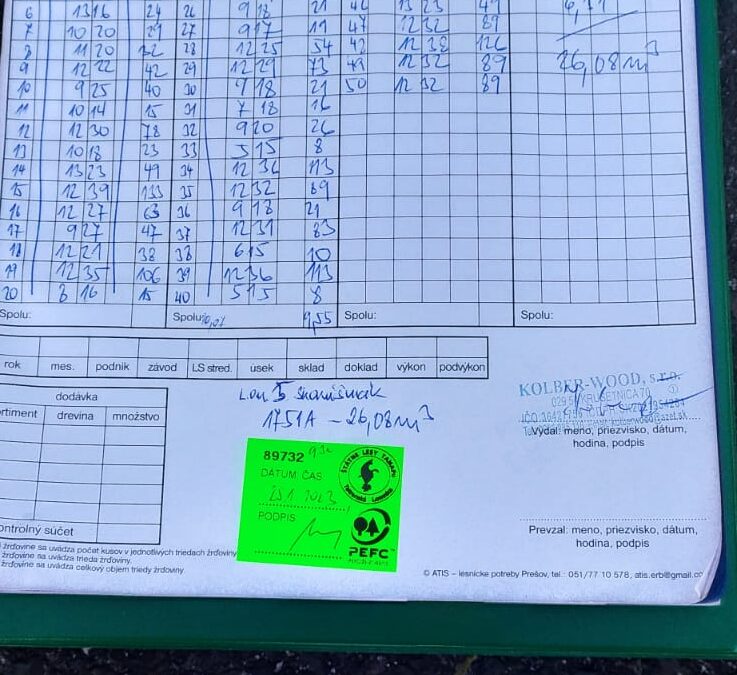 6 13 16 24 26 9 18 21 46 13 23 49
7 10 20 29 27 9 17 19 47 12 32 89
8 11 20 32 28 12 25 54 48 12 38 126
9 12 22 42 29 12 29 73 49 12 32 89 26,08m³
10 9 25 40 30 9 18 21 50 12 32 89
11 10 14 15 31 7 18 16
12 12 30 78 32 9 20 26
13 10 18 23 33 5 15 8
14 13 23 49 34 12 36 113
15 12 39 133 35 12 32 89
16 12 27 63 36 9 18 21
17 9 27 47 37 12 31 83
18 12 21 38 38 6 15 10
19 12 35 106 39 12 36 113
20 8 16 15 40 5 15 8
Spolu: Spolu: 9,55 Spolu: Spolu:
rok mes. podnik závod LS stred. úsek sklad doklad výkon podvýkon
dodávka
drevina množstvo
1751A - 26,08m³
KOLBER-WOOD, s.r.o.
Vydal: meno, priezvisko, dátum,
hodina, podpis
89732
DÁTUM ČAS
PODPIS
ŠTÁTNE LESY TANAPU
Tatranská Lomnica
PEFC
Prevzal: meno, priezvisko, dátum,
hodina, podpis
žrďovine sa uvádza počet kusov v jednotlivých triedach žrďoviny
žrďovine sa uvádza trieda žrďoviny.
žrďovine sa uvádza celkový objem triedy žrďoviny.
© ATIS – lesnícke potreby Prešov, tel.: 051/77 10 578, atis.erbi@gmail.co